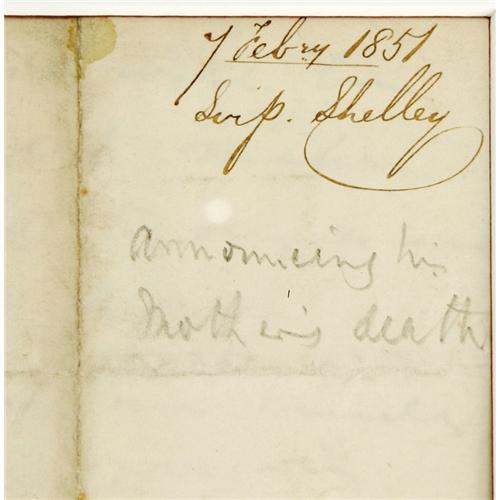 7 Febry 1851
Sir P. Shelley
announcing his
Mother's death